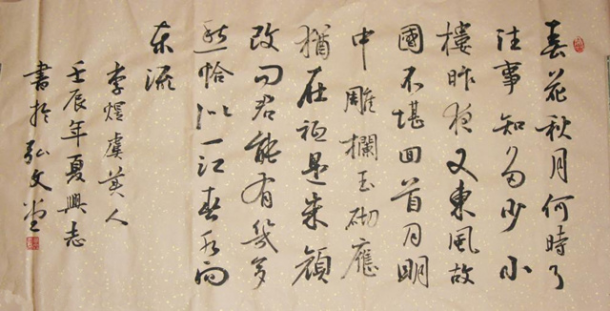 春花秋月何時了
往事知多少小
樓昨夜又東風故
國不堪回首月明
中雕欄玉砌應
猶在祇是朱顏
改問君能有幾多
愁恰似一江春水向
东流
李煜虞美人
壬辰年夏興志
書於弘文堂